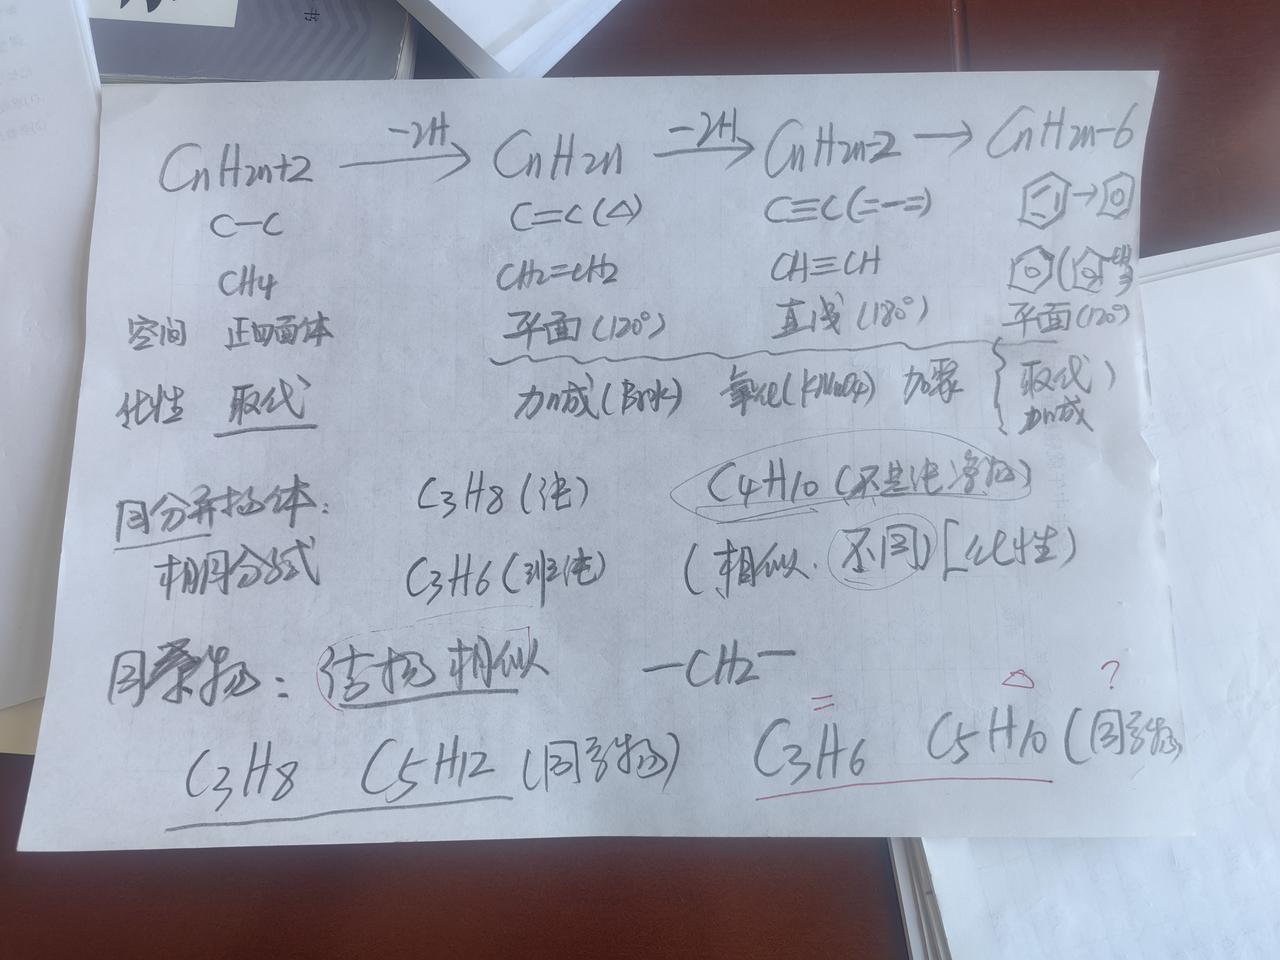 CnH2n+2 —-2H→ CnH2n —-2H→ CnH2n-2 → CnH2n-6
C-C C=C(△) C≡C(=-=)
CH4 CH2=CH2 CH≡CH
空间 正四面体 平面(120°) 直线(180°) 平面(120°)
化性 取代 加成(Br水) 氧化(KMnO4) 加聚 { 取代
加成
同分异构体: C3H8(纯) C4H10(不是纯净物)
相同分子式 C3H6(非纯) (相似.不同)[化性)
同系物: 结构相似 -CH2-
= △ ?
C3H8 C5H12 (同系物) C3H6 C5H10 (同系物